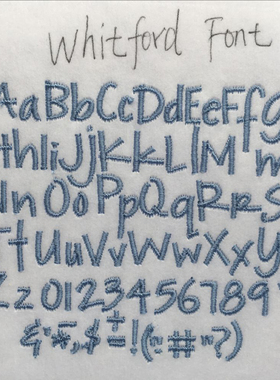 Whitford Font
AaBbCcDdEeFfg
hIiJjKkLlMm
nOoPpQqRrS
TtUuVvWwXxY
Zz0123456789
&*,$±!(:#"?)